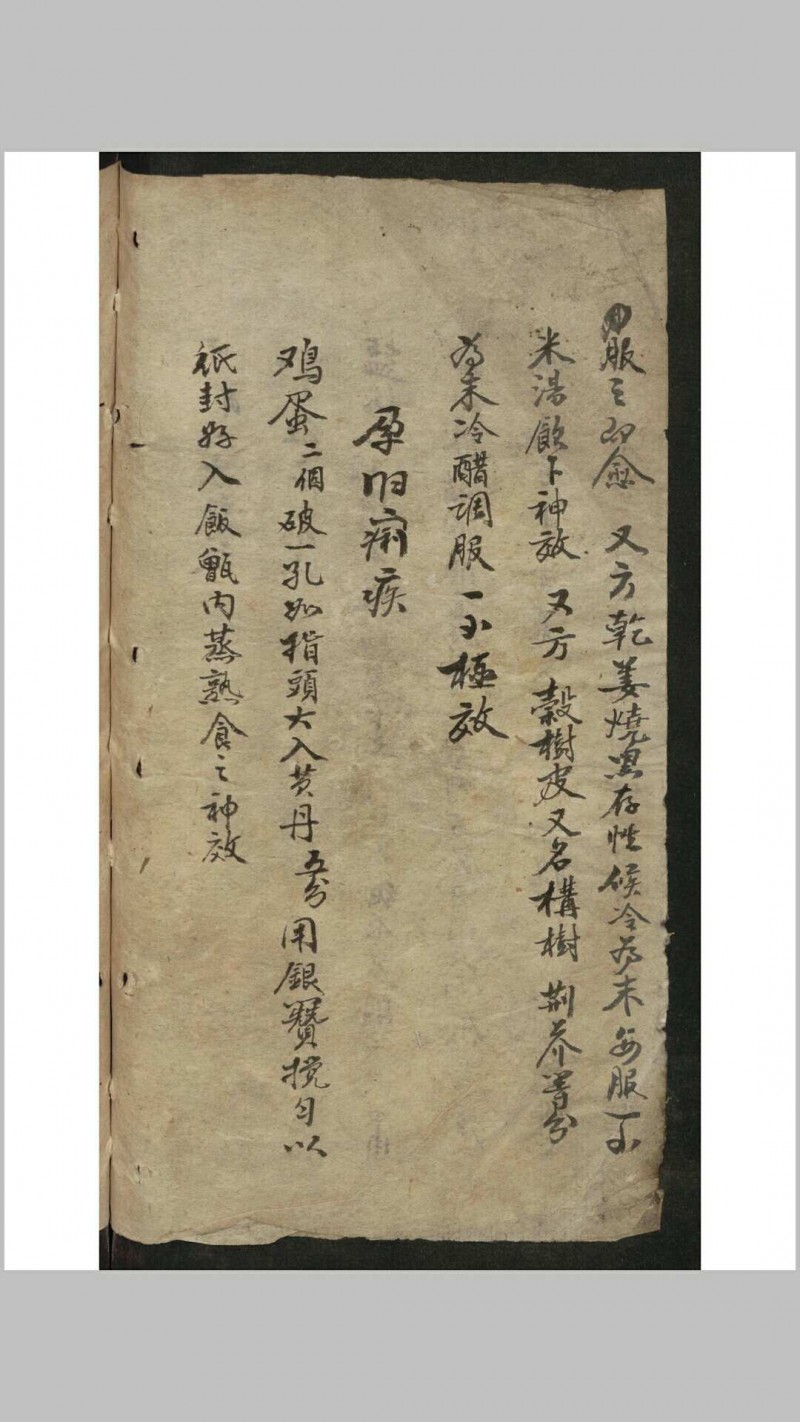 服之即愈 又方乾姜燒黑存性候冷為末每服一錢
米湯飲下神效 又方 穀樹皮又名構樹 荊芥等分
為末冷醋調服一錢極效
孕婦痢疾
鸡蛋二個破一孔如指頭大入黃丹五分用銀簪攪勻以
祇封好入飯甑內蒸熟食之神效